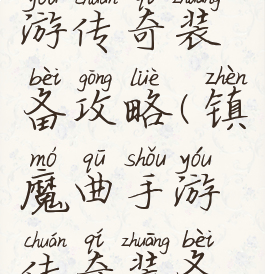 yóu chuán qí zhuāng
游传奇装
bèi gōng lüè zhèn
备攻略(镇
mó qū shǒu yóu
魔曲手游
chuán qí zhuāng bèi
传奇装备